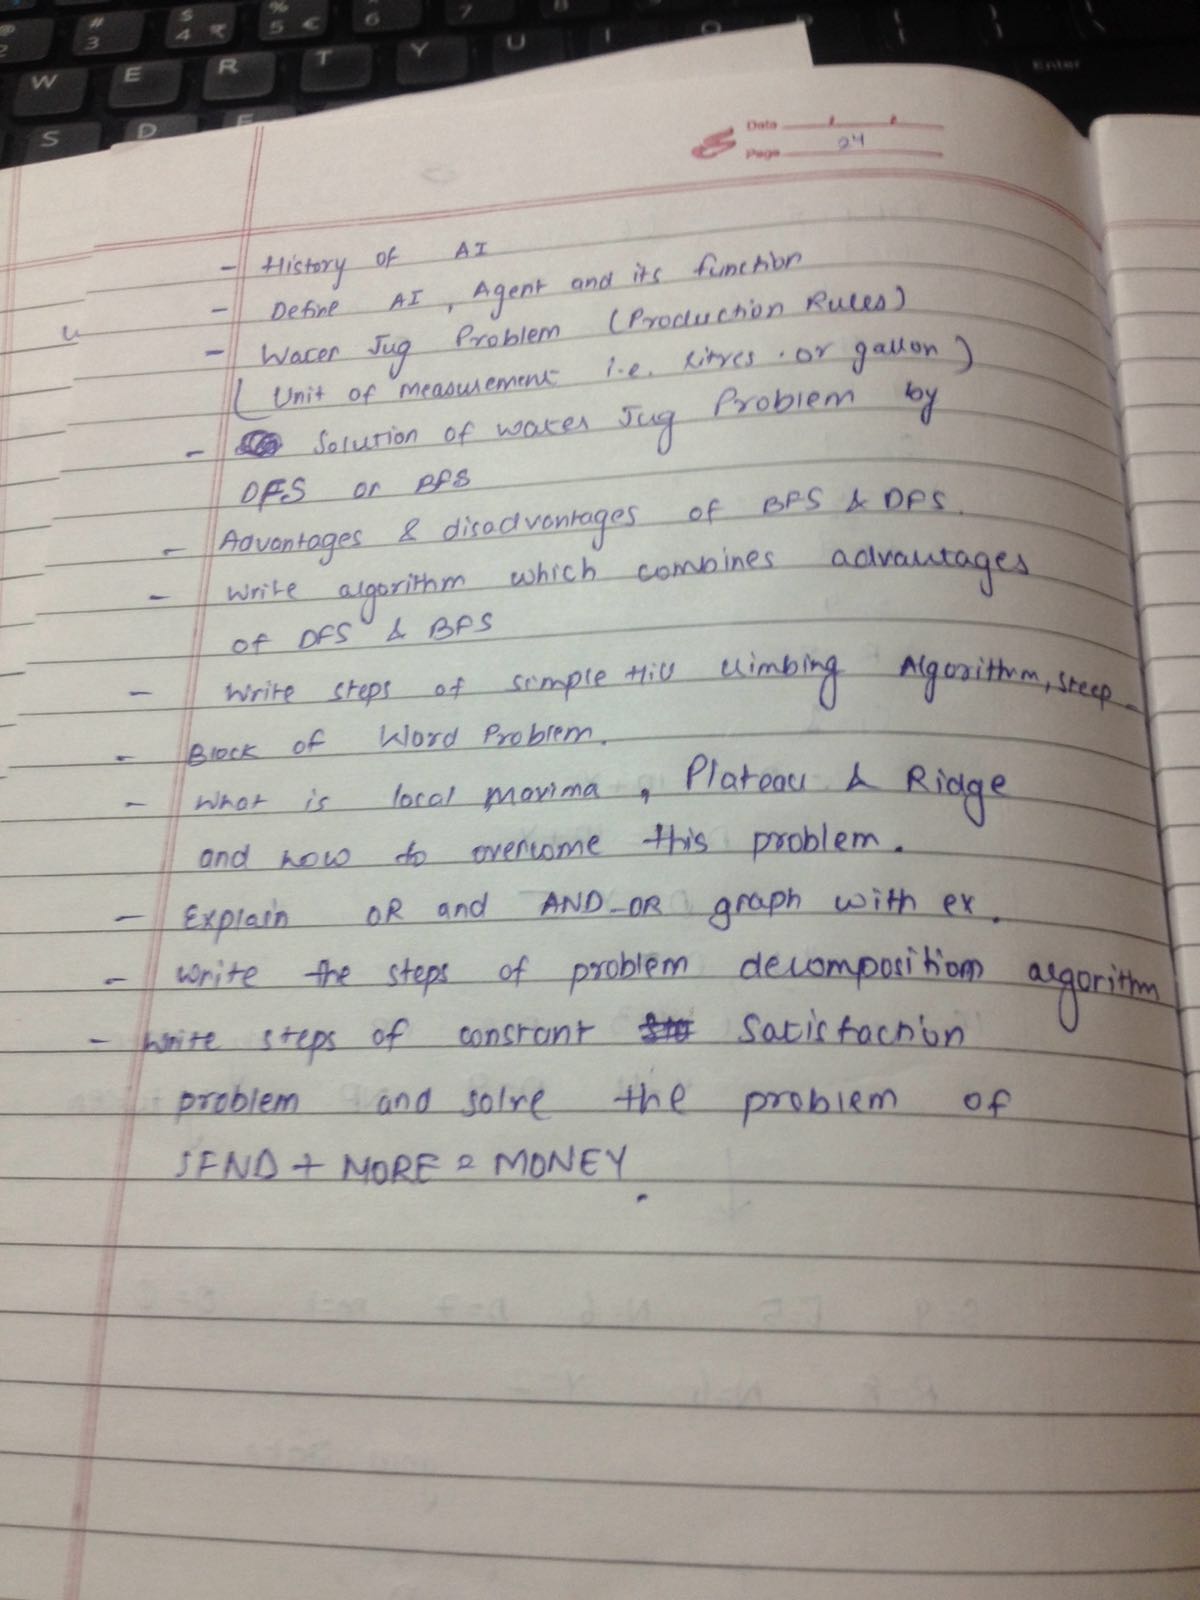 Date
Page 24
- History of AI
- Define AI, Agent and its function
- Water Jug Problem (Production Rules)
( Unit of measurement i.e. Litres or gallon )
- Solution of water Jug Problem by
DFS or BFS
- Advantages & disadvantages of BFS & DFS.
- Write algorithm which combines advantages
of DFS & BFS
- Write steps of simple Hill climbing Algorithm, steep
- Block of Word Problem.
- What is local maxima, Plateau & Ridge
and how to overcome this problem.
- Explain OR and AND-OR graph with ex.
- Write the steps of problem decomposition algorithm
- Write steps of constant Satisfaction
problem and solve the problem of
SEND + MORE = MONEY.